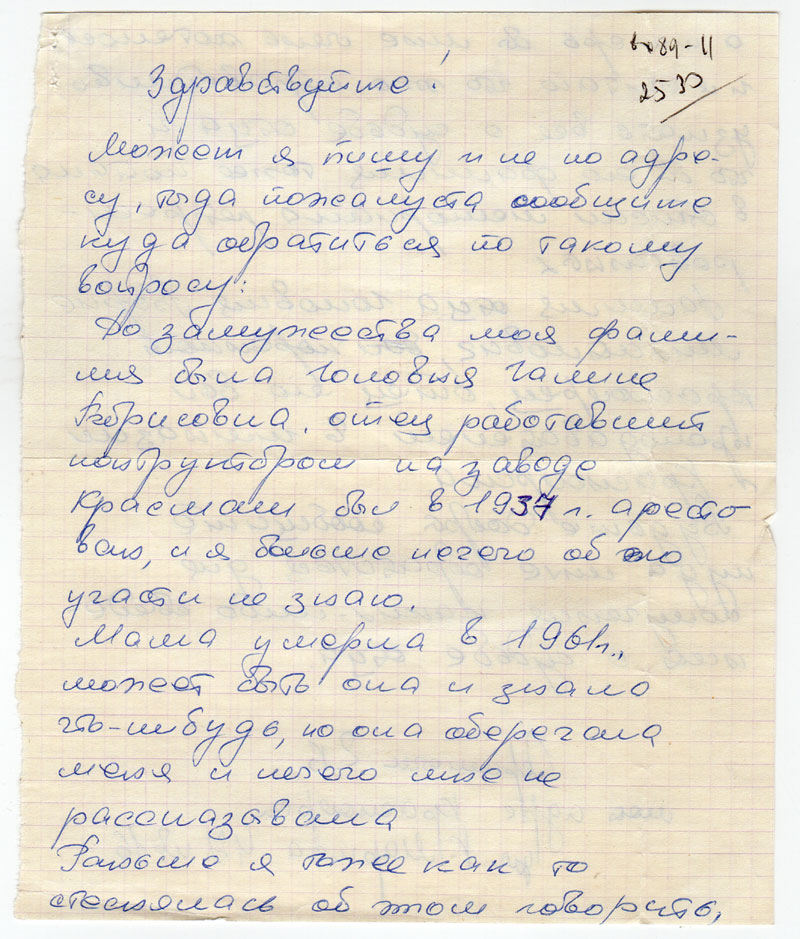 89-11
25 30
Здравствуйте!
Может я пишу и не по адре-
су, тогда пожалуста сообщите
куда обратиться по такому
вопросу:
До замужества моя фами-
лия была Головня Галина
Борисовна, отец работавший
контруктором на заводе
Красмаш был в 1937 г. аресто
ван, и я больше нечего об его
участи не знаю.
Мама умерла в 1961г.,
может быть она и знала
что-нибудь, но она оберегала
меня и нечего мне не
рассказывала
Раньше я тоже как то
стеснялась об этом говорить,